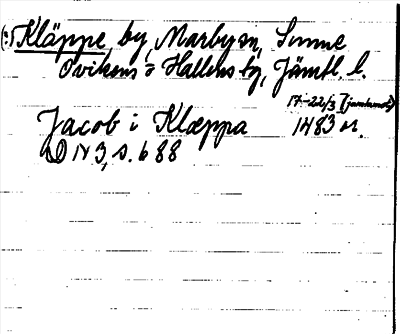 (:) Kläppe, by, Marby sn, Sunne
Ovikens o Hallens tg, Jämtl. l.
17-22/3 (jamtamot)
Jacob i Klæppa 1483 or.
DN 3, s. 688